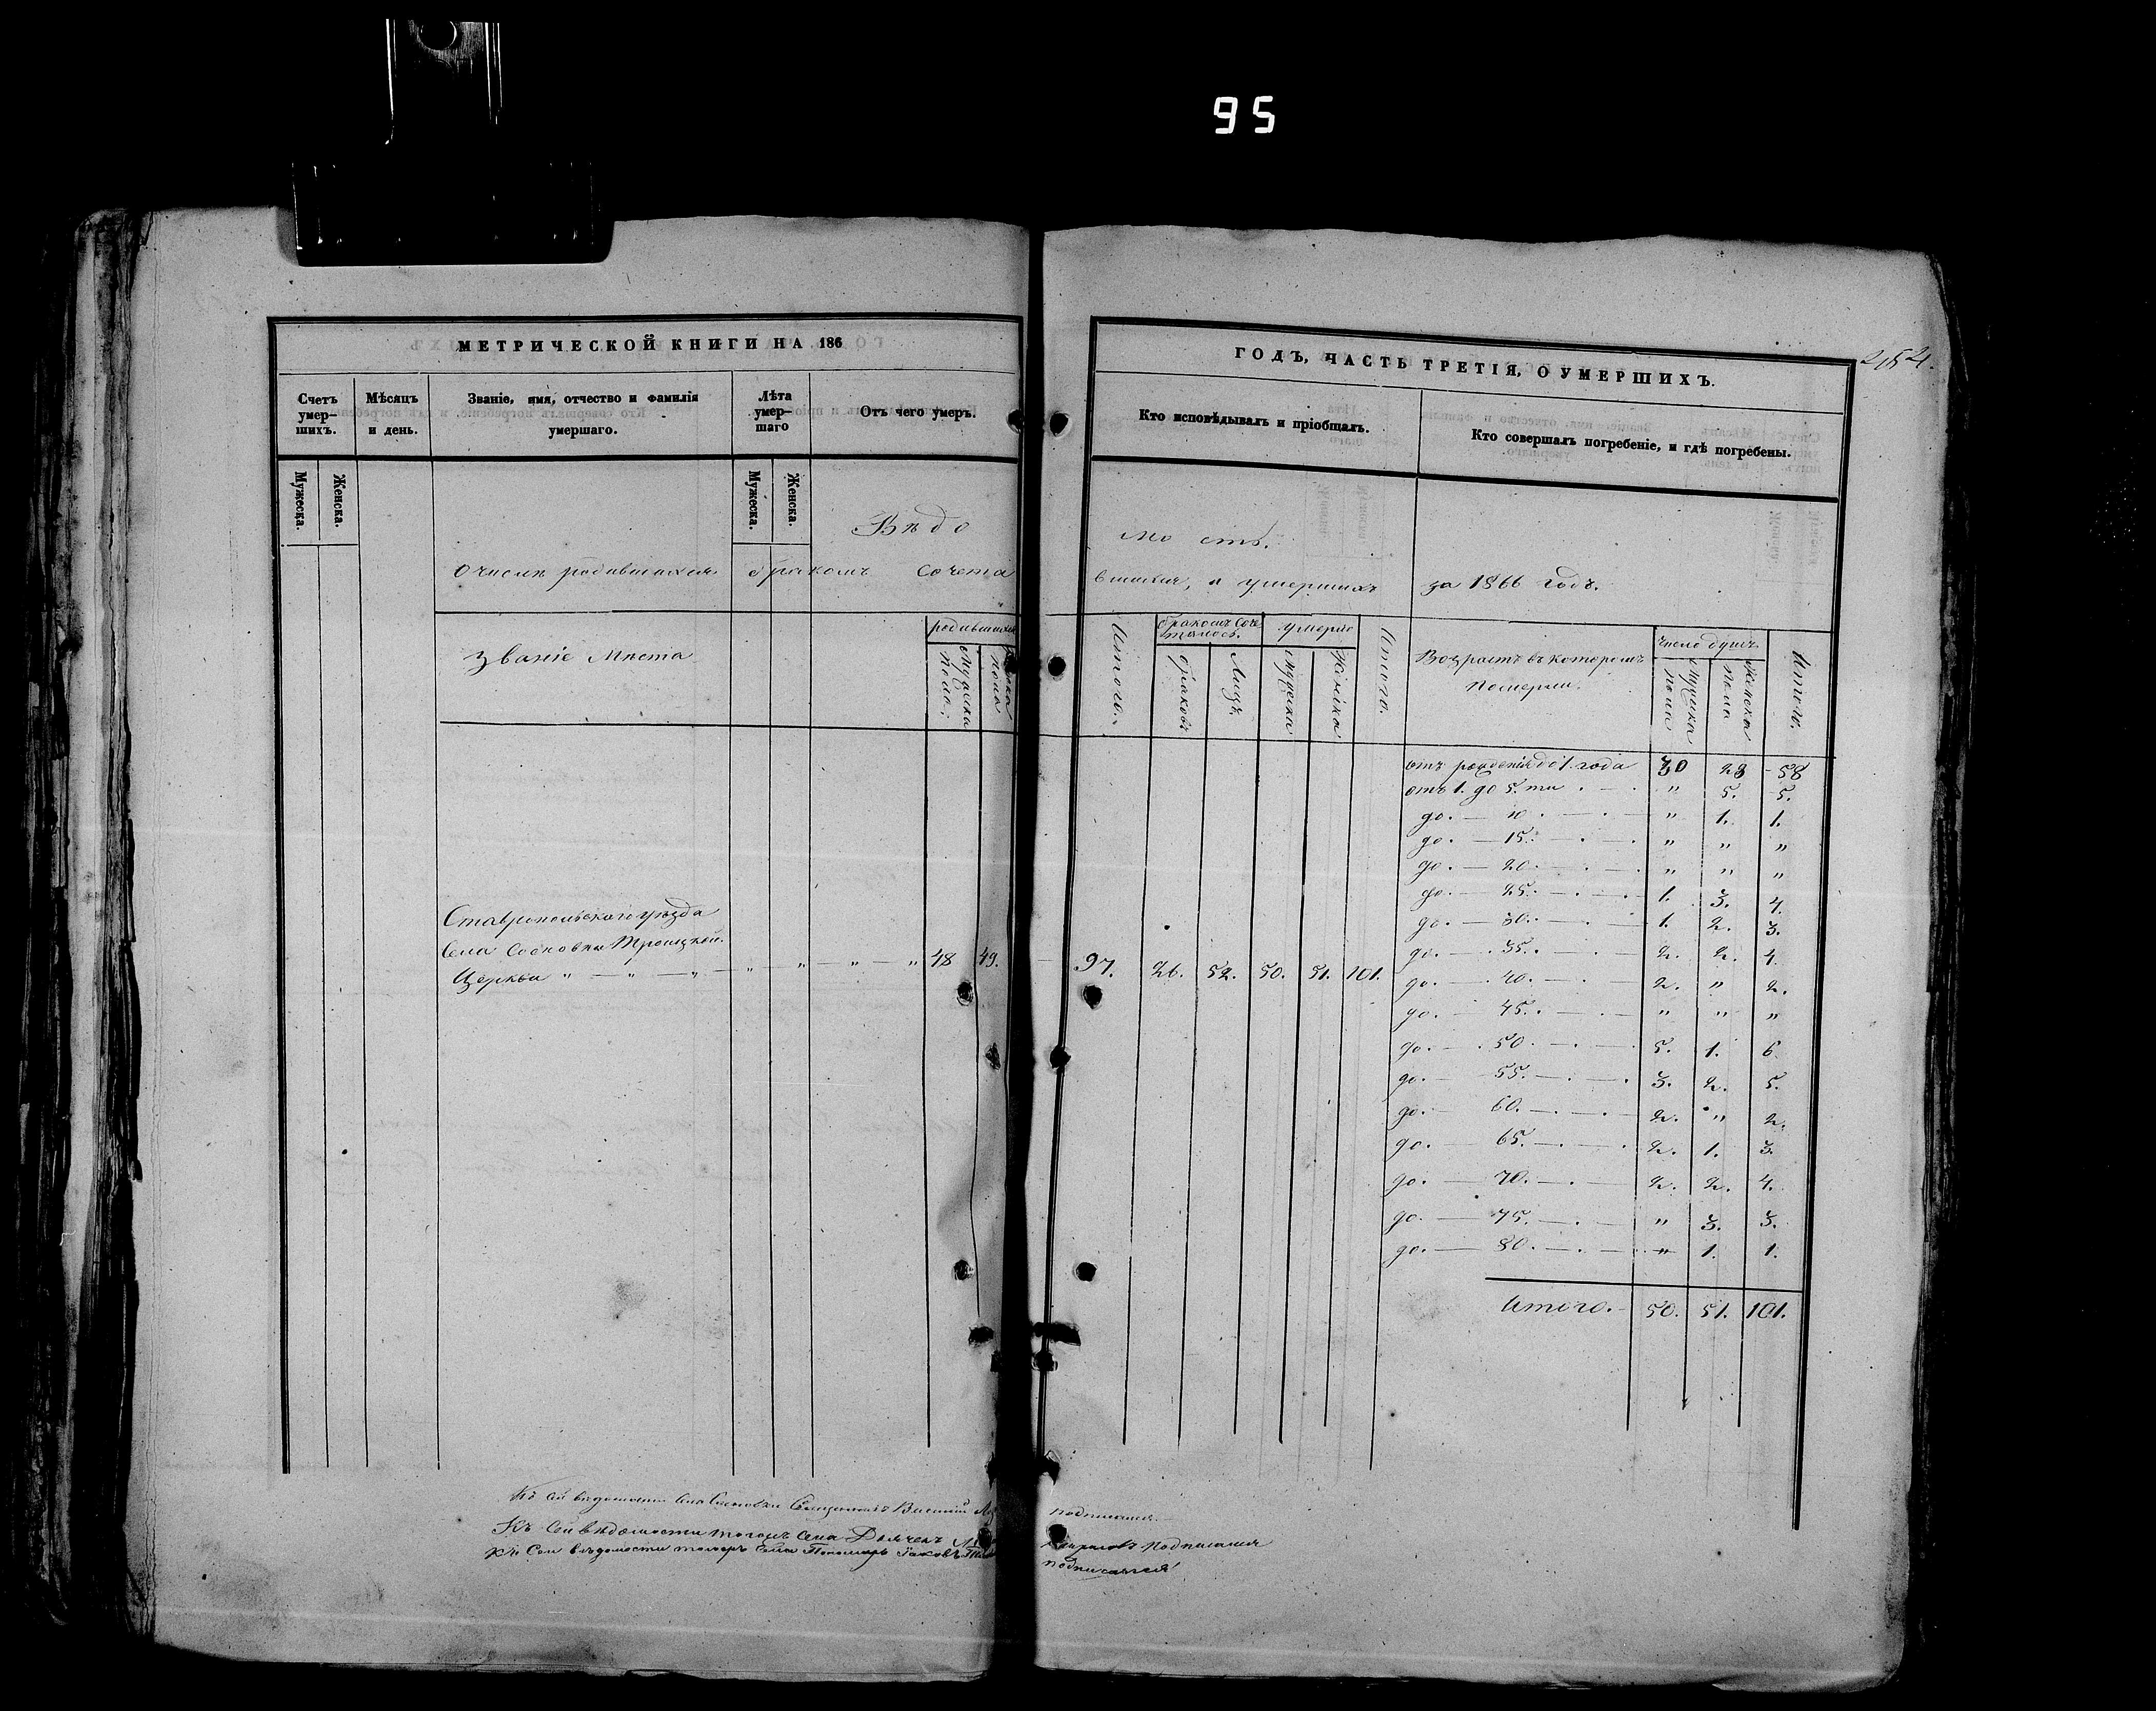 95
МЕТРИЧЕСКОЙ КНИГИ НА 186
ГОДЪ, ЧАСТЬ ТРЕТІЯ, О УМЕРШИХЪ.
Счетъ умер-шихъ.
Мѣсяцъ и день.
Званіе, имя, отчество и фамилія умершаго.
Лѣта умер-шаго
Отъ чего умеръ.
Кто исповѣдывалъ и пріобщалъ.
Кто совершалъ погребеніе, и гдѣ погребены.
Мужеска.
Женска.
Мужеска.
Женска.
Вѣдо мость.
о числѣ родившихся бракомъ сочета вшихся, и умершихъ за 1866 годъ.
званіе Мѣста
родившихся
Мужеска пола
Женска пола
Итого.
бракомъ соче талось.
браковъ
Лицъ.
умерло
Мужеска
Женска
Итого.
Возрастъ въ которомъ померли.
Число душъ.
Мужеска пола
Женска пола
Итого.
Ставропольскаго уѣзда
Села Сосновки Троицкой
Церкви " — " — " — " — " — " — " 48 49. 97. 26. 52. 50. 51. 101.
отъ рожденія до 1. года 30 28 58
отъ 1. до 5. ти " 5. 5.
до. — 10. " 1. 1.
до. — 15. " " "
до. — 20. " " "
до. — 25. 1. 3. 4.
до. — 30. 1. 2. 3.
до. — 35. 2. 2. 4.
до. — 40. 2. " 2.
до. — 45. " " "
до. — 50. 5. 1. 6.
до. — 55. 3. 2. 5.
до. — 60. 2. " 2.
до. — 65. 2. 1. 3.
до. — 70. 2. 2. 4.
до. — 75. " 3. 3.
до. — 80. " 1. 1.
Итого. 50. 51. 101.
Къ сей вѣдомости села Сосновки Священникъ Василій подписался
Къ сей вѣдомости тогожъ села Дьячекъ подписался
Къ сей вѣдомости тогожъ села Пономарь Іаковъ подписался